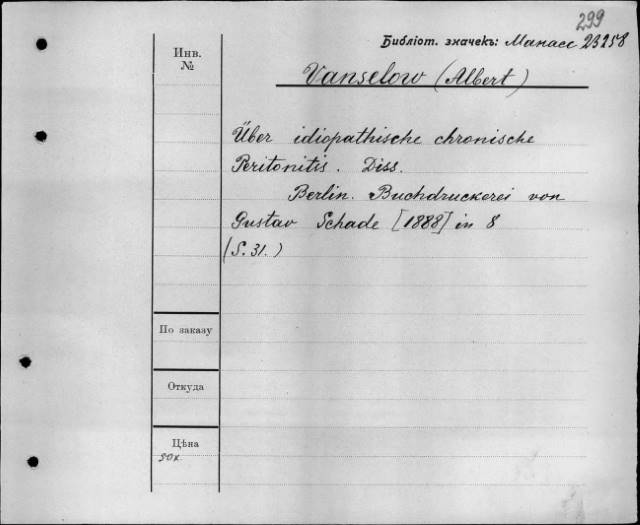 299
Библіот. значекъ: Манасс 23258
Инв.
№
Vanselow (Albert)
Über idiopathische chronische
Peritonitis. Diss.
Berlin. Buchdruckerei von
Gustav Schade [1888] in 8
(S. 31.)
По заказу
Откуда
Цѣна
50к